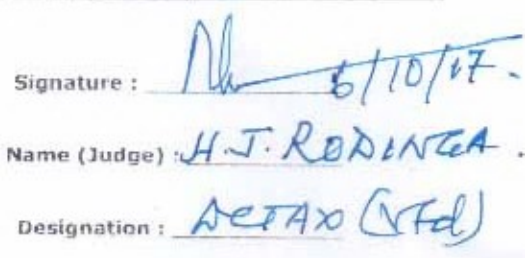 Signature : 6/10/17.
Name (Judge) : H.J. RODINGA .
Designation :